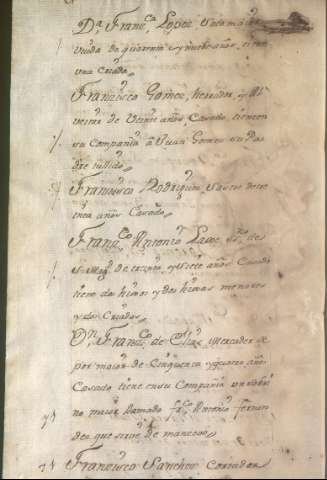 Dª Franca Lopez
viuda de quarenta y nueve años, tiene
una Criada
Francisco Gomez, herrador, y Al
veitar de Veinte años, Casado, tiene en
su Compania â Juan Gomez su Pa
dre tullido
Francisco Rodriguez, Sastre de tre
inta años Casado
Franco Antonio de
S. Mag.d de treinta y siete años Casado
tiene dos hijos y dos hijas menores
y dos Criados
Dn Franco de Mercader
por maior de Cinquenta y años
Casado tiene en su Compañia un
no maior llamado Franco Antonio fernan
dez que sirve de mancebo
Francisco Sanchez Corredor